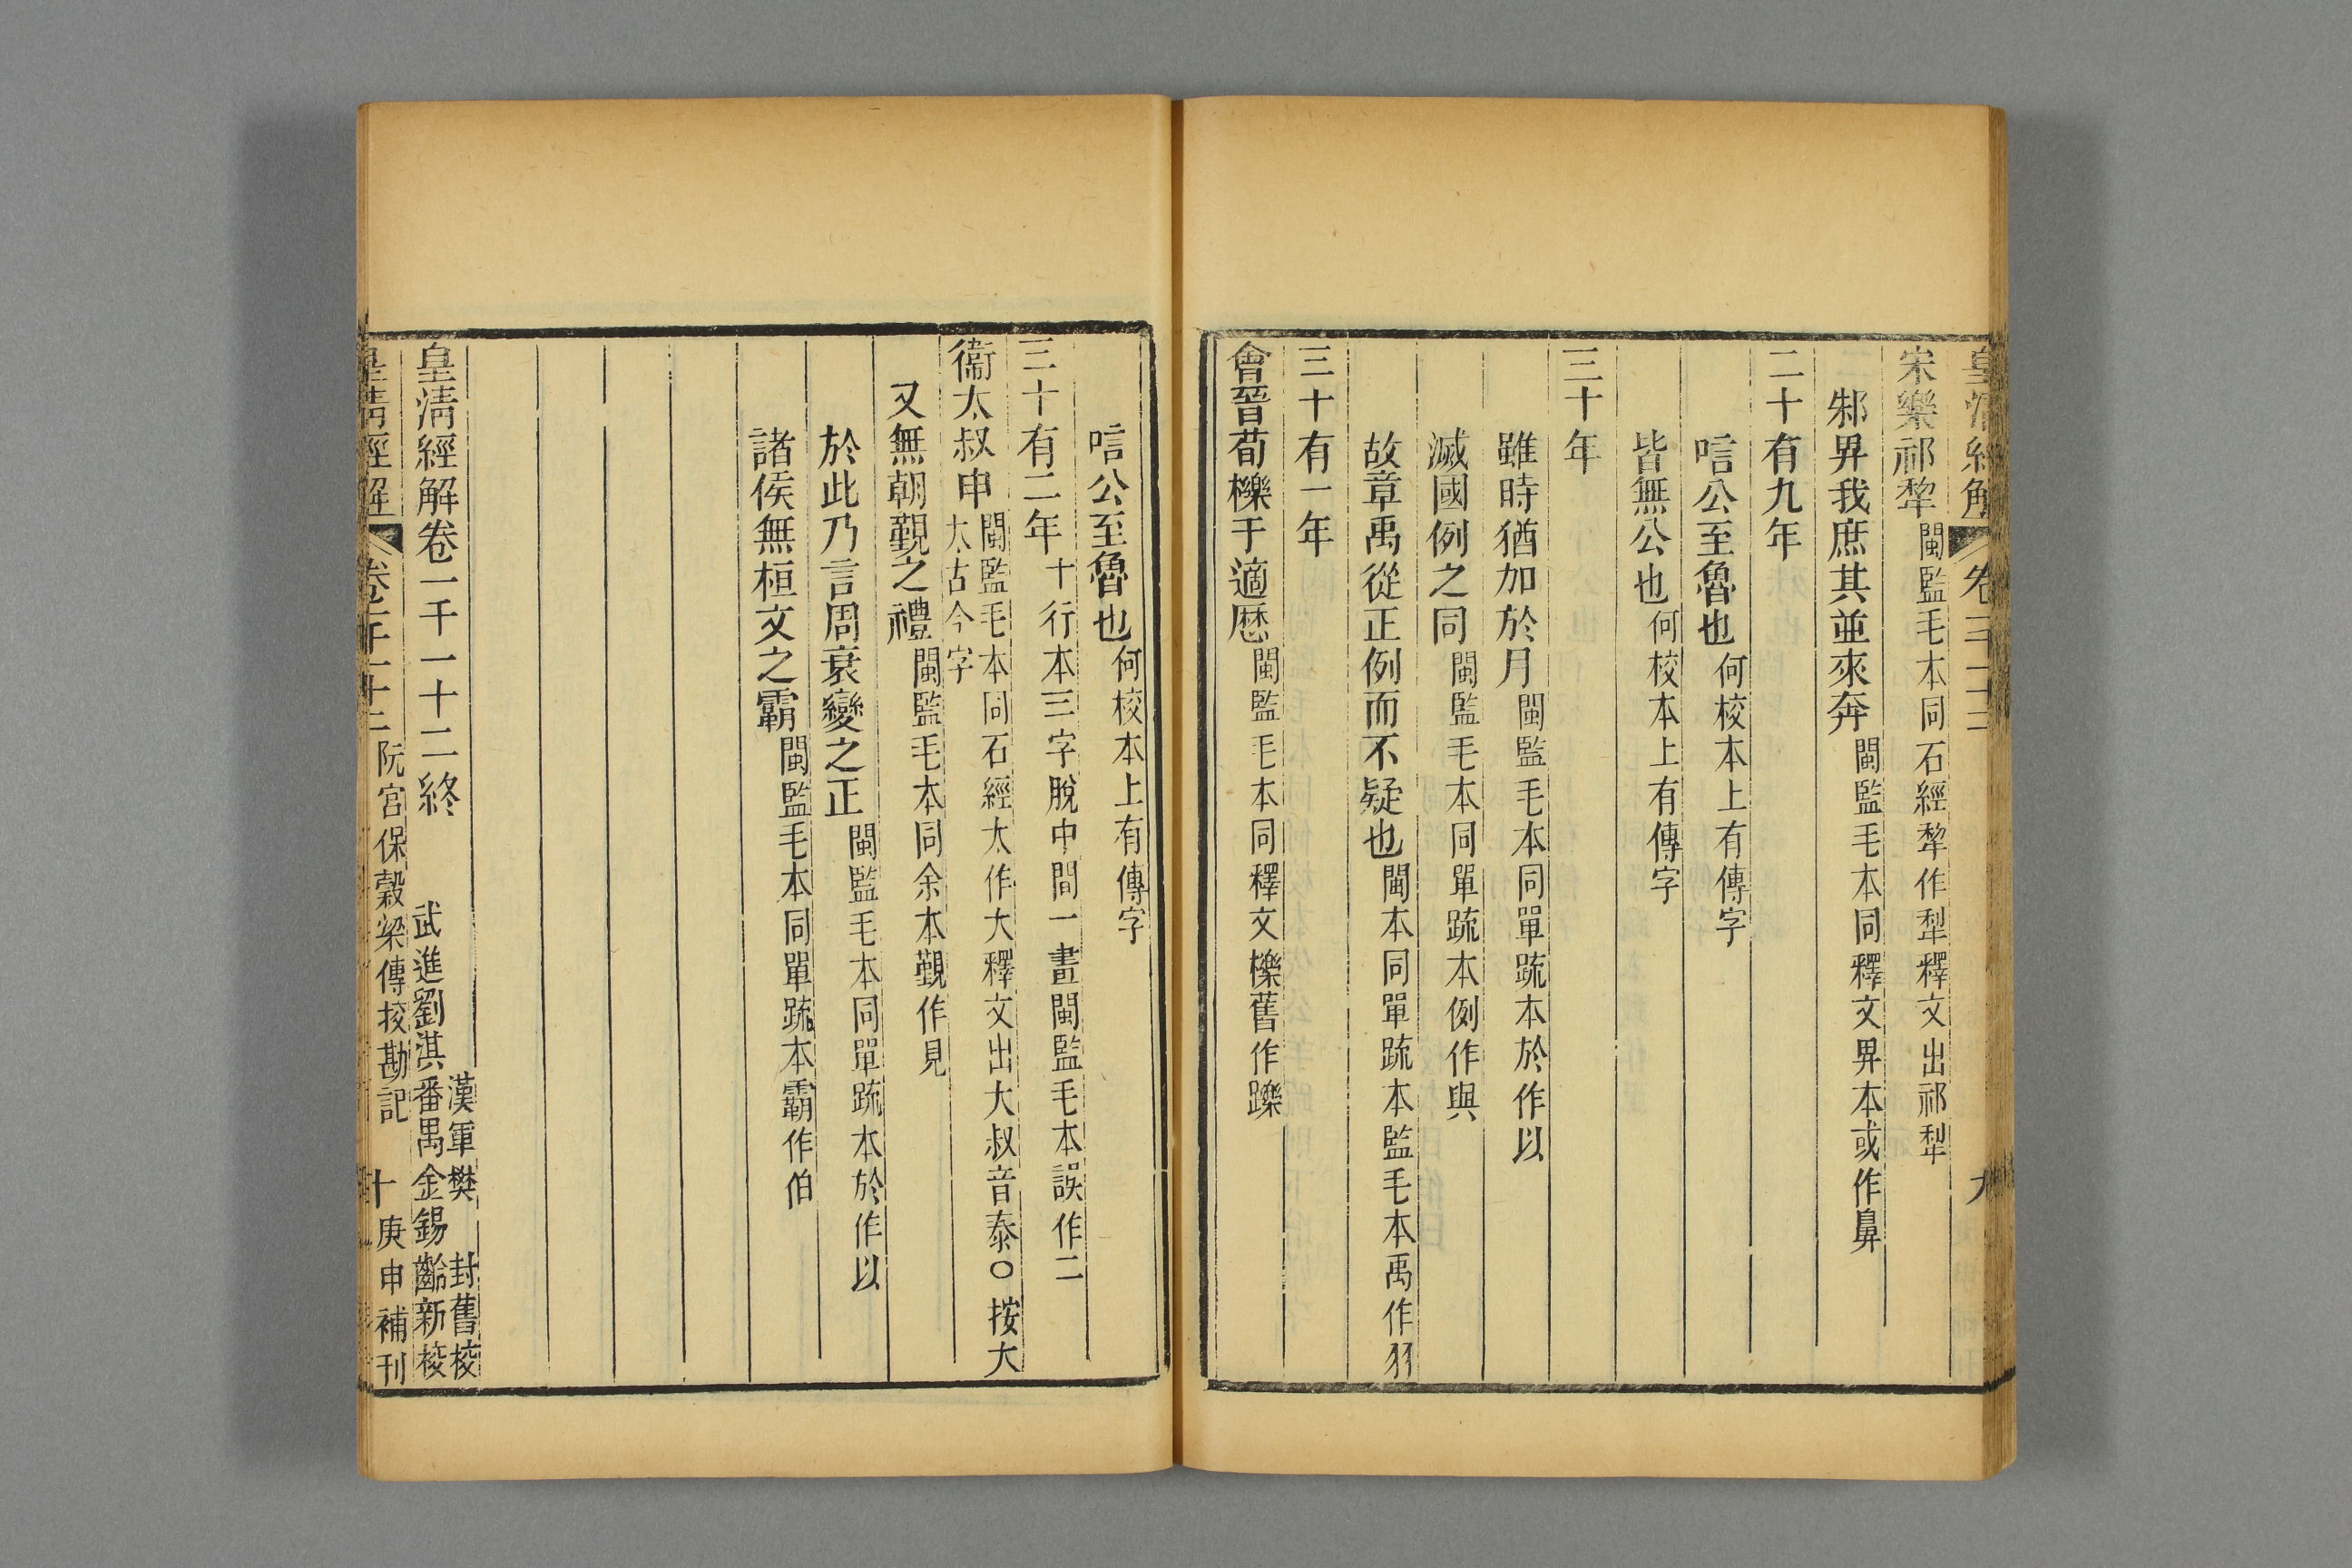 宋樂祁犂閩監毛本同石經犂作犁釋文出祁犁
邾畀我庶其並來奔閩監毛本同釋文畀本或作鼻
二十有九年
唁公至魯也何校本上有傳字
皆無公也何校本上有傳字
三十年
雖時猶加於月閩監毛本同單疏本於作以
滅國例之同閩監毛本同單疏本例作與
故章禹從正例而不疑也閩本同單疏本監毛本禹作羽
三十有一年
會晉荀櫟于適厯閩監毛本同釋文櫟舊作躒
唁公至魯也何校本上有傳字
三十有二年十行本三字脫中間一畫閩監毛本誤作二
衞太叔申閩監毛本同石經太作大釋文出大叔音泰○按大
太古今字
又無朝覲之禮閩監毛本同余本覲作見
於此乃言周衰變之正閩監毛本同單疏本於作以
諸侯無桓文之霸閩監毛本同單疏本霸作伯
漢軍樊 封舊校
皇清經解卷一千一十二終 武進劉淇番禺金錫齡新校
皇清經解 卷一千一十二 阮宮保穀梁傳挍勘記 十 庚申補刊